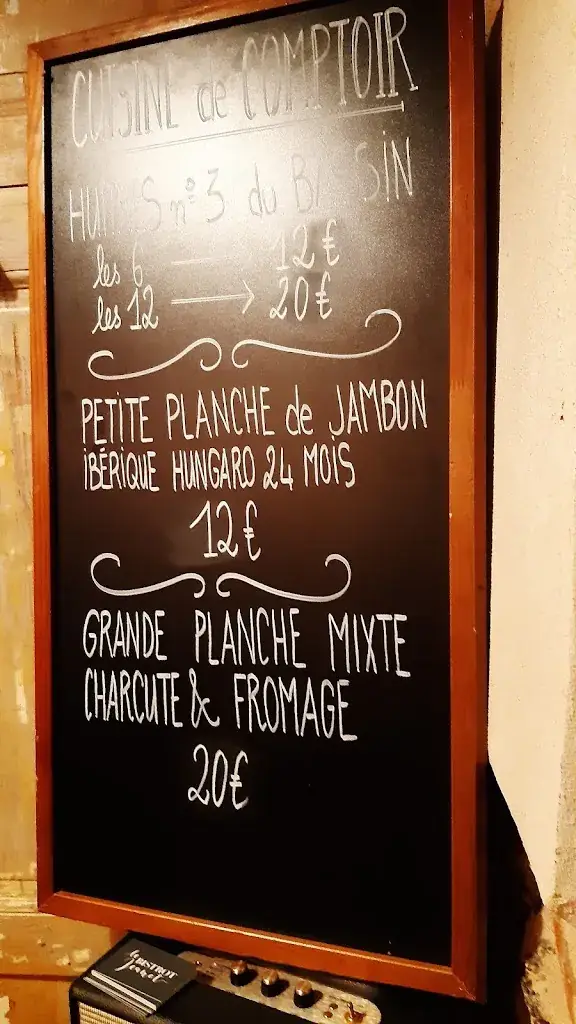 CUISINE de COMPTOIR
HUITRES n°3 du BASSIN
les 6 12€
les 12 → 20€
PETITE PLANCHE de JAMBON
IBÉRIQUE HUNGARO 24 MOIS
12€
GRANDE PLANCHE MIXTE
CHARCUTE & FROMAGE
20€
le BISTROT